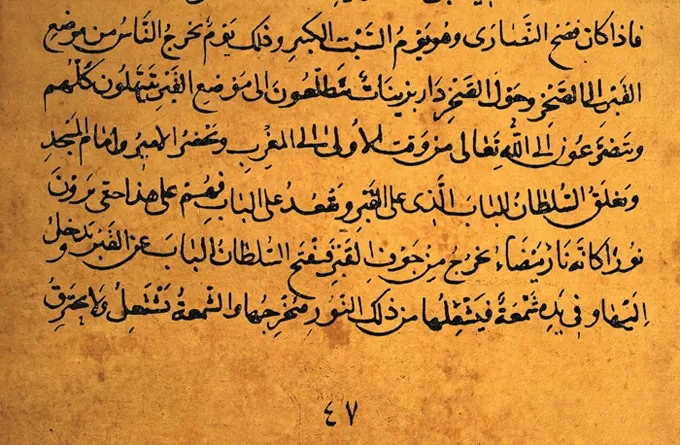 فاذا كان فصح النصارى وهو يوم السبت الكبير وذلك يوم يخرج الناس من موضع
القبر الى الصخر وحول الصخر دار بزينات يتطلعون الى موضع القبر يتبهلون كلهم
ويتضرعون الى الله تعالى من وقت الأولى الى المغرب ويحضر الامير وامام المسجد
ويغلق السلطان الباب الذي على القبر ويقعد على الباب فهم على هذا حتى يرون
نورا كانه نار بيضاء يخرج من جوف القبر فيفتح السلطان الباب عن القبر ويدخل
اليها وفي يده شمعة فيشعلها من ذلك النور فيخرجها والشمعة تشتعل ولا يحترق
٤٧